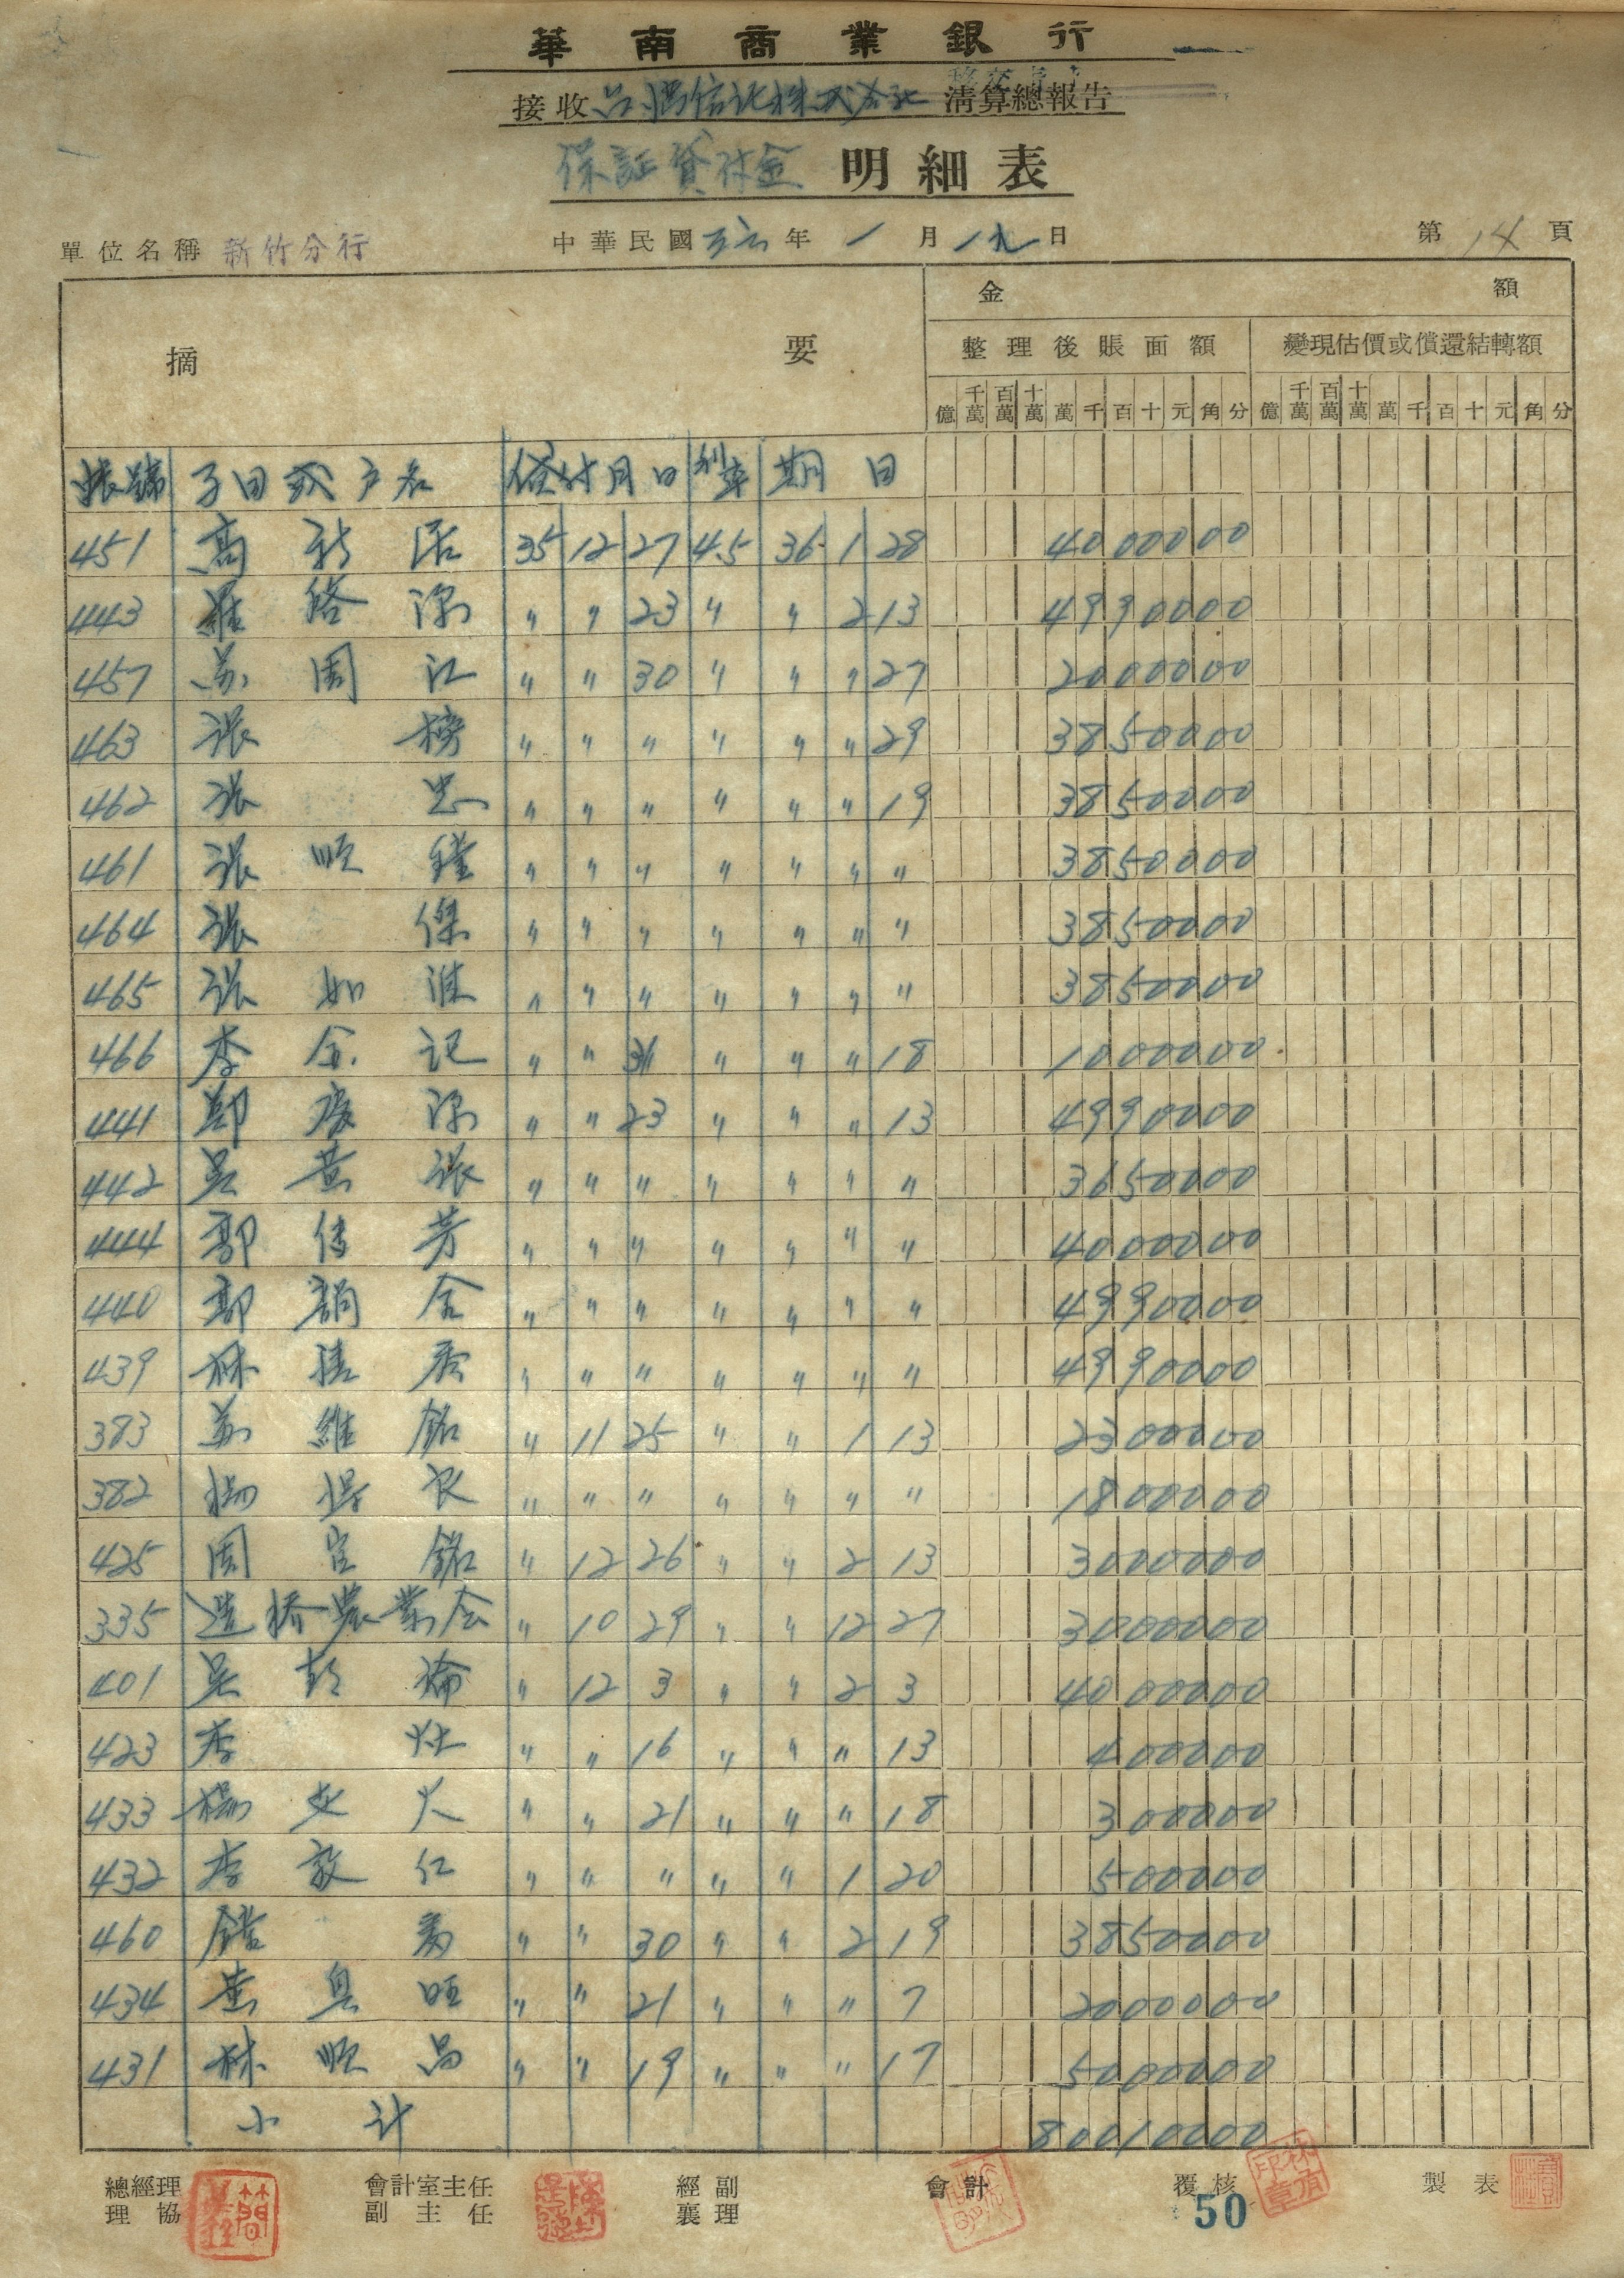 華南商業銀行
接收台灣信託株式会社清算總報告
保証貸付金 明細表
單位名稱 新竹分行 中華民國三六年一月一九日 第14頁
摘要 金額
整理後賬面額 變現估價或償還結轉額
億 千萬 百萬 十萬 萬 千 百 十 元 角 分 億 千萬 百萬 十萬 萬 千 百 十 元 角 分
帳號 子目或戶名 貸付月日 利率 期日
451 高 35 12 27 4.5 36 1 28 4000000
443 羅 〃 〃 23 〃 〃 2 13 4990000
457 蘇周江 〃 〃 30 〃 〃 〃 27 2000000
463 張榜 〃 〃 〃 〃 〃 〃 29 3850000
462 張忠 〃 〃 〃 〃 〃 〃 19 3850000
461 張順鏗 〃 〃 〃 〃 〃 〃 〃 3850000
464 張傑 〃 〃 〃 〃 〃 〃 〃 3850000
465 張如淮 〃 〃 〃 〃 〃 〃 〃 3850000
466 李金記 〃 〃 31 〃 〃 〃 18 1000000
441 鄭 〃 〃 23 〃 〃 〃 13 4990000
442 吳黃張 〃 〃 〃 〃 〃 〃 〃 3650000
444 郭傳芳 〃 〃 〃 〃 〃 〃 〃 4000000
440 郭 〃 〃 〃 〃 〃 〃 〃 4990000
439 林 〃 〃 〃 〃 〃 〃 〃 4990000
383 蘇維銘 〃 11 25 〃 〃 1 13 2300000
382 楊得良 〃 〃 〃 〃 〃 〃 〃 1800000
425 周宮銘 〃 12 26 〃 〃 2 13 3000000
335 造橋農業会 〃 10 29 〃 〃 12 27 30000000
401 吳彭 〃 12 3 〃 〃 2 3 40000000
423 李灶 〃 〃 16 〃 〃 〃 13 400000
433 楊火 〃 〃 21 〃 〃 〃 18 300000
432 李敦仁 〃 〃 〃 〃 〃 1 20 500000
460 〃 〃 30 〃 〃 2 19 3850000
434 黃旺 〃 〃 21 〃 〃 〃 7 2000000
431 林順昌 〃 〃 19 〃 〃 〃 17 5000000
小計 80010000
總經理 會計室主任 經副 會計 覆核 製表
理協 副主任 襄理
50